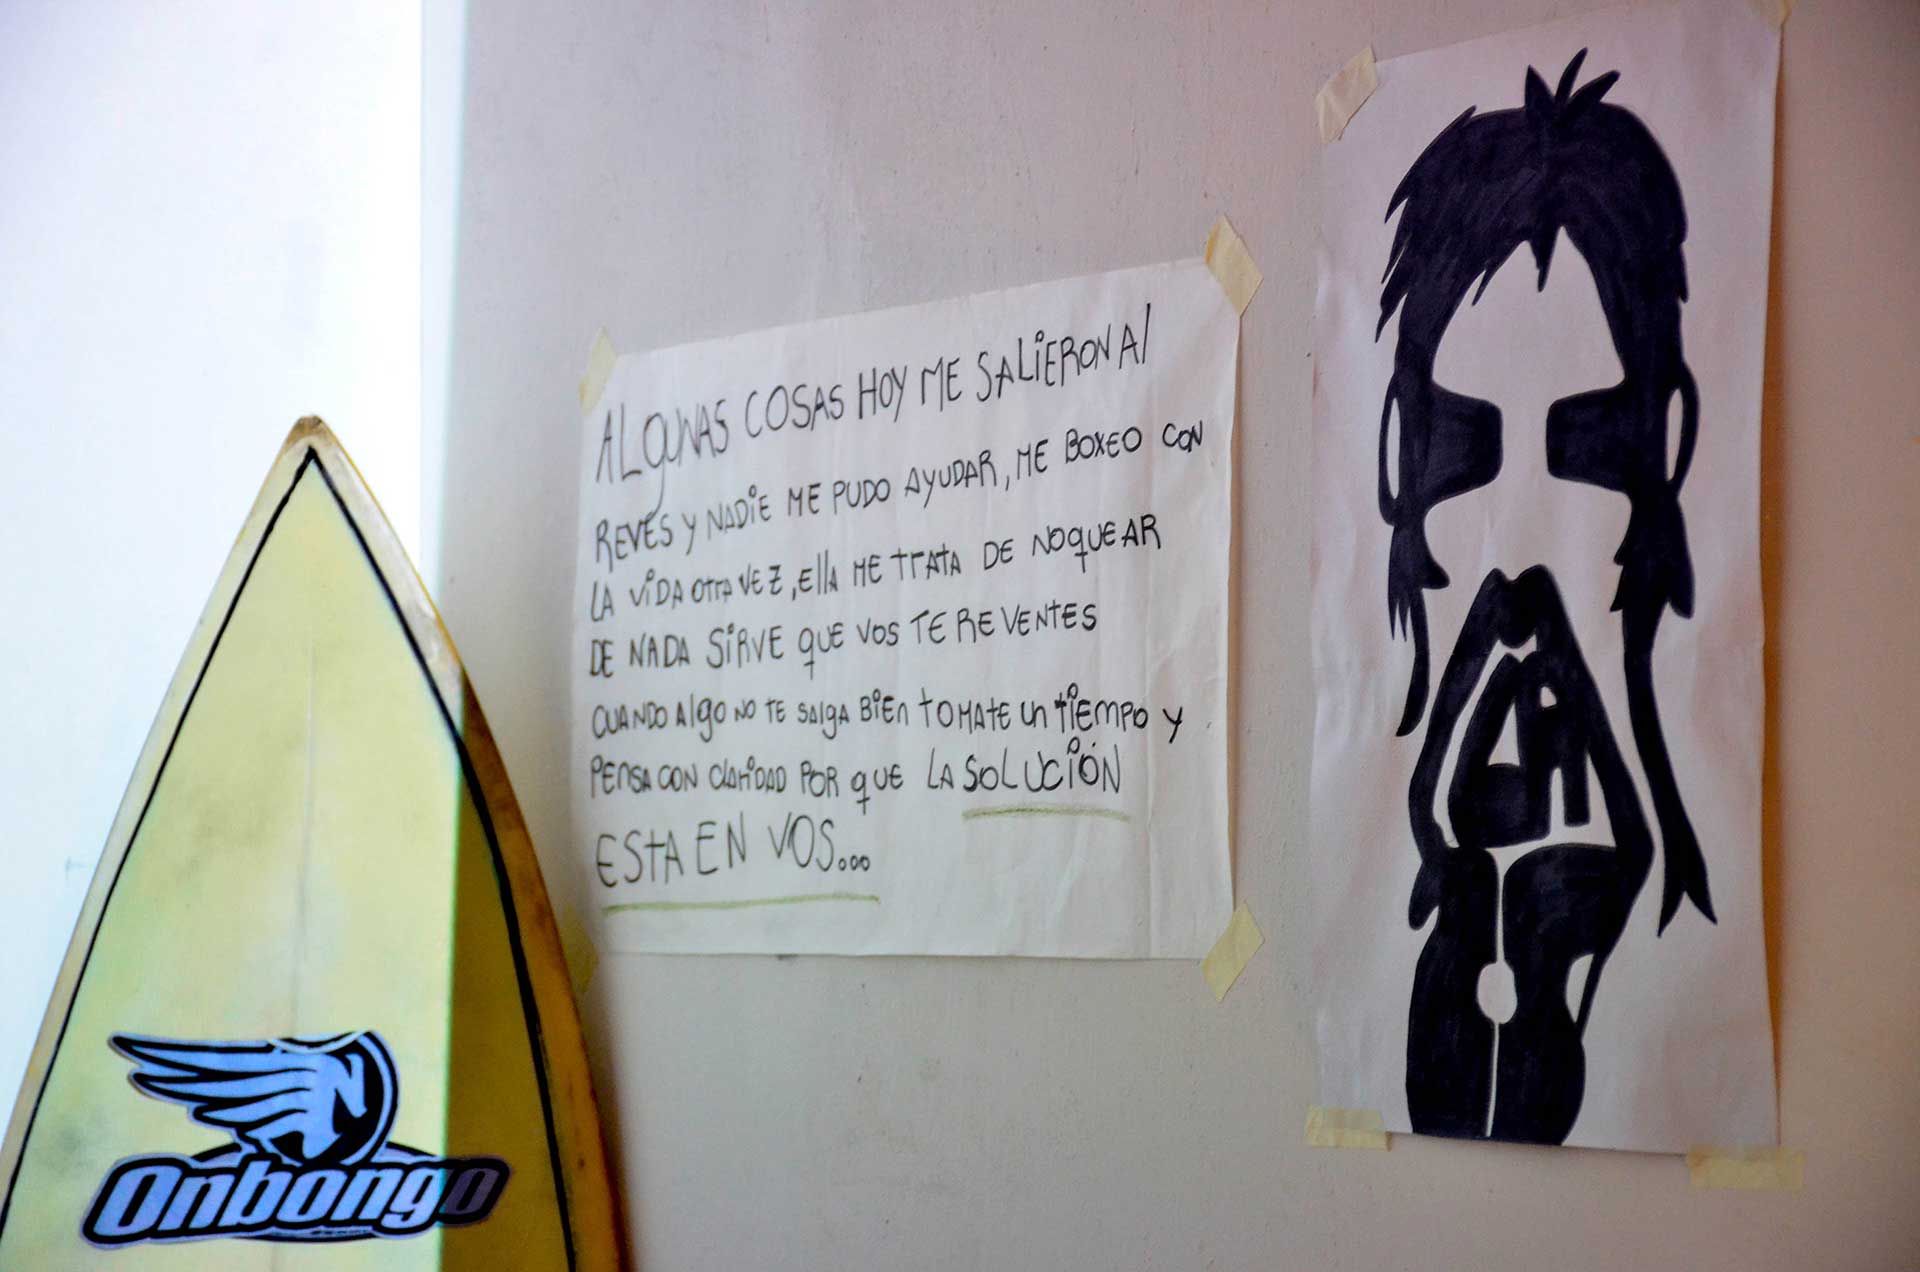 ALGUNAS COSAS HOY ME SALIERON Al
REVES Y NADIE ME PUDO AYUDAR, ME BOXEO CON
LA VIDA OTRA VEZ, EllA ME TRATA DE NOQUEAR
DE NADA SIRVE QUE VOS TE REVENTES
CUANDO AlgO NO TE SALGA BIEN TOMATE UN TIEMPO Y
PENSA CON CLARIDAD POR QUE LA SOLUCIÓN
ESTA EN VOS...
Onbongo